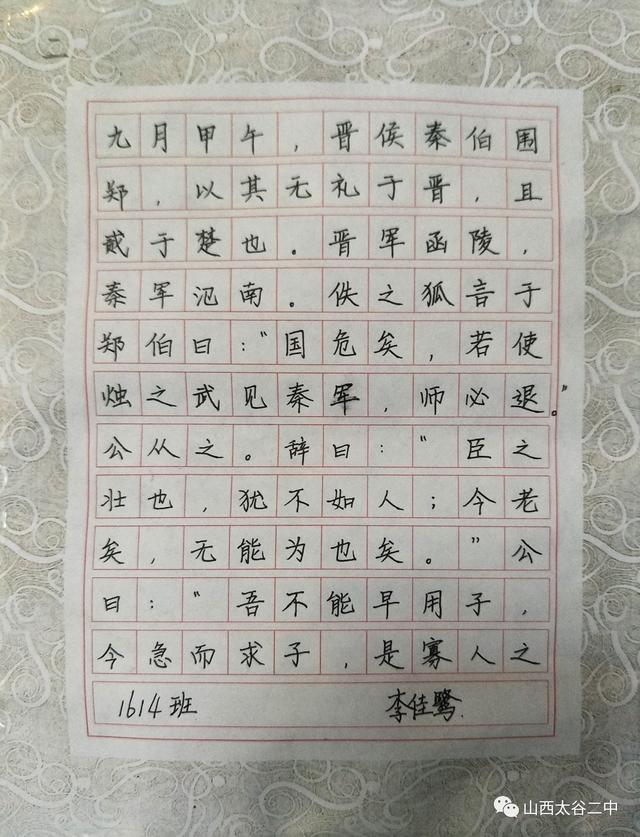 九月甲午，晋侯秦伯围
郑，以其无礼于晋，且
贰于楚也。晋军函陵，
秦军氾南。佚之狐言于
郑伯曰："国危矣，若使
烛之武见秦军，师必退。"
公从之。辞曰："臣之
壮也，犹不如人；今老
矣，无能为也矣。"公
曰："吾不能早用子，
今急而求子，是寡人之
1614班 李佳鹭.
山西太谷二中